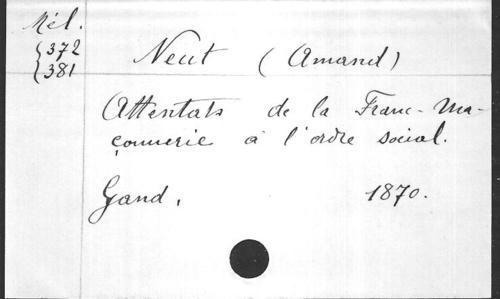 Mél.
372
381
Neut (Amand)
Attentats de la Franc-Ma-
çonnerie à l'ordre social.
Gand, 1870.